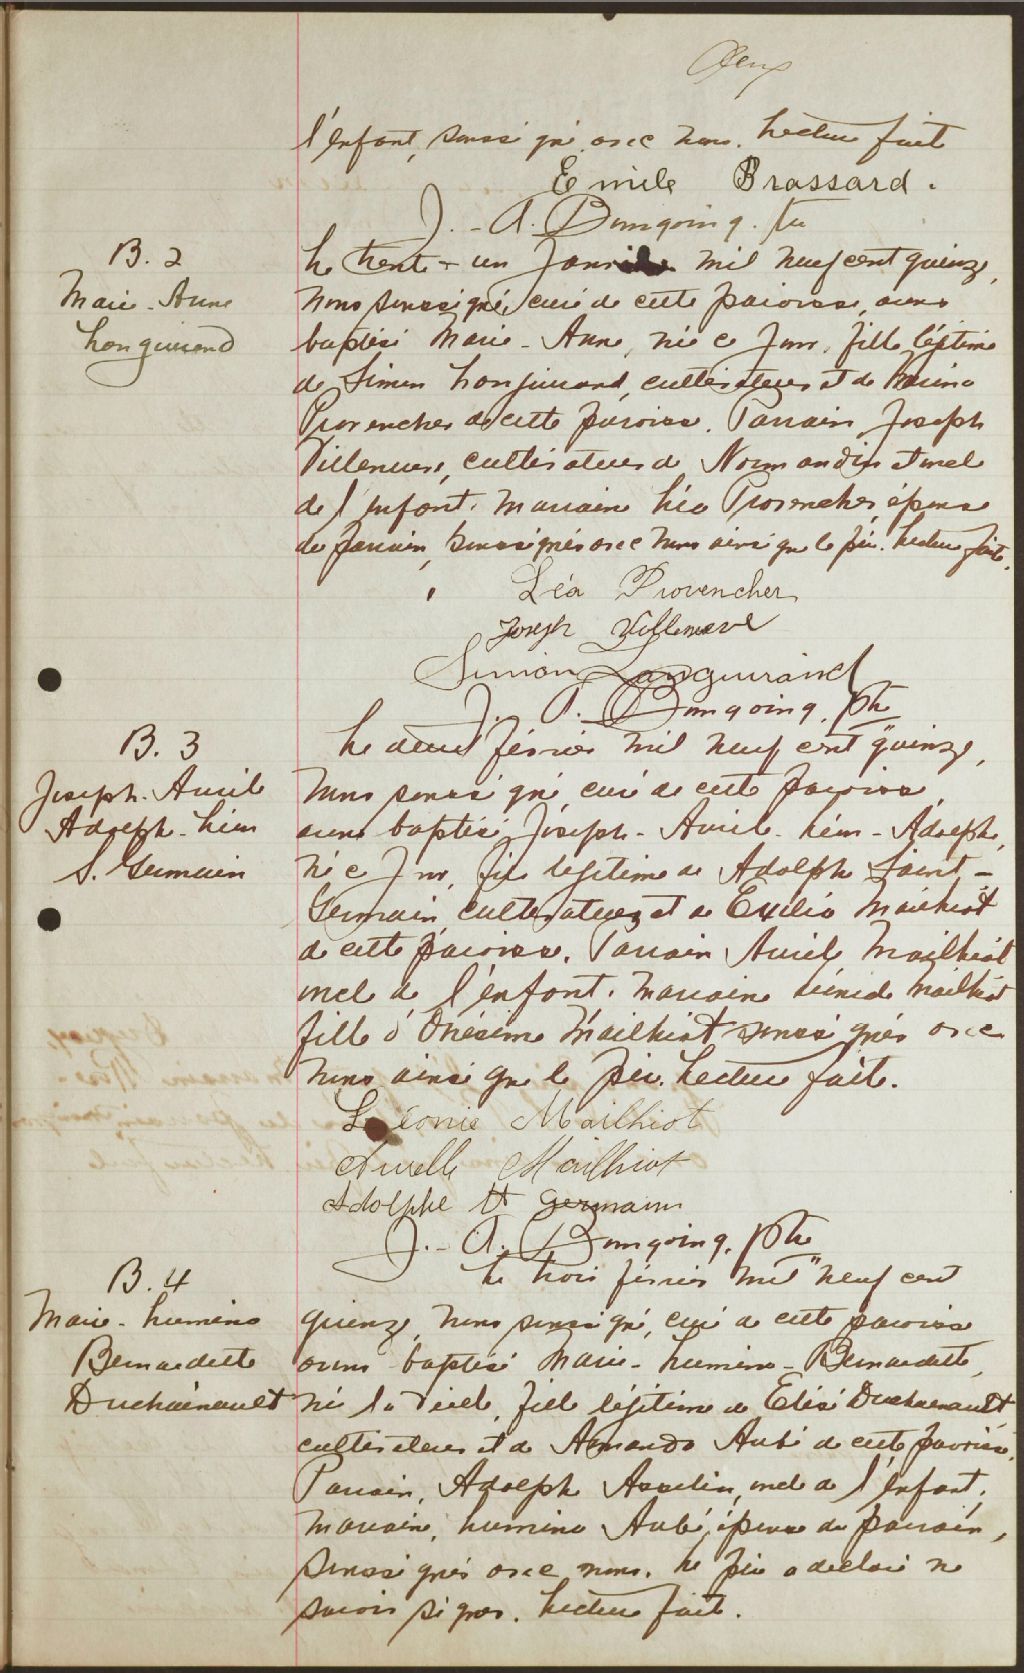 Deux
l'enfant, soussigné avec nous. Lecture faite
Emile Brassard.
J.-A. Bourgoing, ptre
B. 2
Marie-Anne
Longuirand
Le trente-un janvier mil neuf cent quinze,
nous soussigné, curé de cette paroisse, avons
baptisé Marie-Anne, née ce jour, fille légitime
de Simon Longuirand, cultivateur et de
Provencher de cette paroisse. Parrain Joseph
Villeneuve, cultivateur de Normandin oncle
de l'enfant. Marraine Léa Provencher, épouse
du parrain, soussignés avec nous ainsi que le père. Lecture faite.
Léa Provencher
Joseph Villeneuve
Simon Languirand
J. A. Bourgoing, ptre
B. 3
Joseph-Aurile
Adolph-Léon
S. Germain
Le deux février mil neuf cent quinze,
nous soussigné, curé de cette paroisse,
avons baptisé Joseph-Aurile-Léon-Adolphe,
né ce jour, fils légitime de Adolphe Saint-
Germain, cultivateur et de Exilia Mailhiot
de cette paroisse. Parrain Aurile Mailhiot
oncle de l'enfant. Marraine Mailhiot
fille d'Onésime Mailhiot soussignés avec
nous ainsi que le père. Lecture faite.
Léonie Mailhiot
Aurelle Mailhiot
Adolphe St Germain
J.-A. Bourgoing, ptre
B. 4
Marie-Lumina
Bernadette
Duchainault
Le trois février mil neuf cent
quinze, nous soussigné, curé de cette paroisse
avons baptisé Marie-Lumina-Bernadette,
née la veille, fille légitime de Elisé Duchainault,
cultivateur et de Armanda Aubé de cette paroisse.
Parrain, Adolph Asselin, oncle de l'enfant.
Marraine, Lumina Aubé, épouse du parrain,
soussignés avec nous. Le père a déclaré ne
savoir signer. Lecture faite.